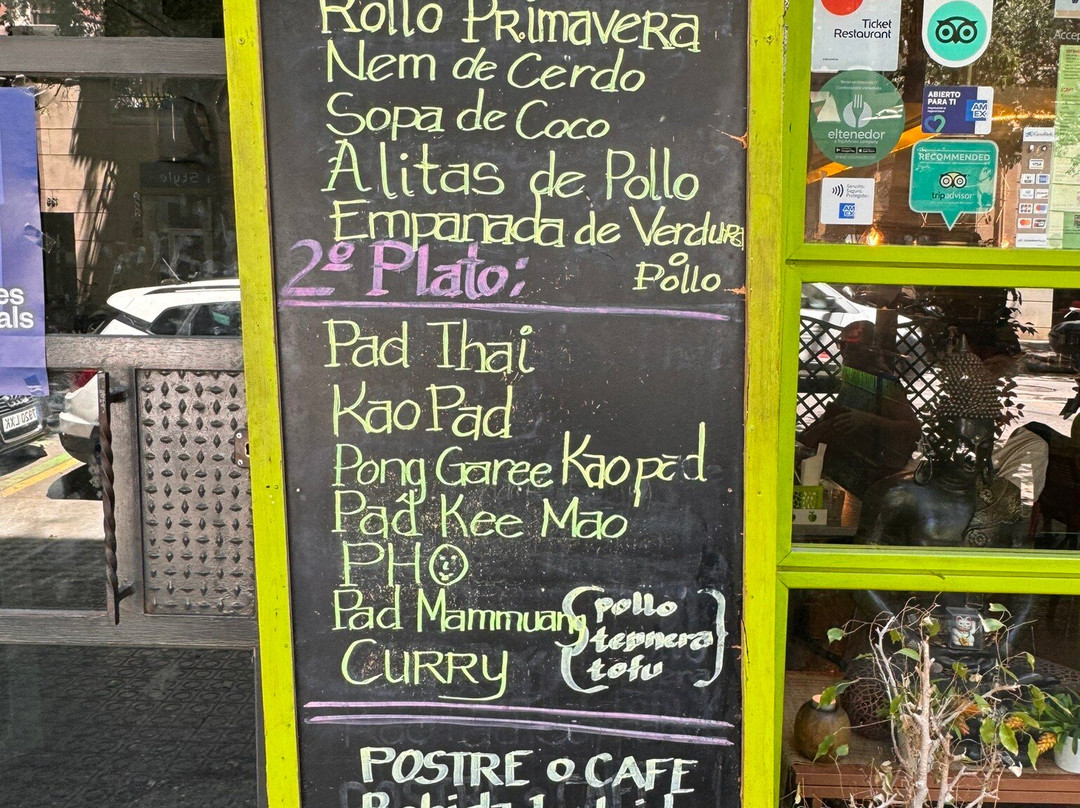 Rollo Primavera
Nem de Cerdo
Sopa de Coco
Alitas de Pollo
Empanada de Verdura
Pollo
2º Plato:
Pad Thai
Kao Pad
Pong Garee Kao pad
Pad Kee Mao
PHO
Pad Mammuang
CURRY
pollo
ternera
tofu
POSTRE o CAFE
Ticket
Restaurant
eltenedor
ABIERTO
PARA TI
AM
EX
RECOMMENDED
tripadvisor
es
als